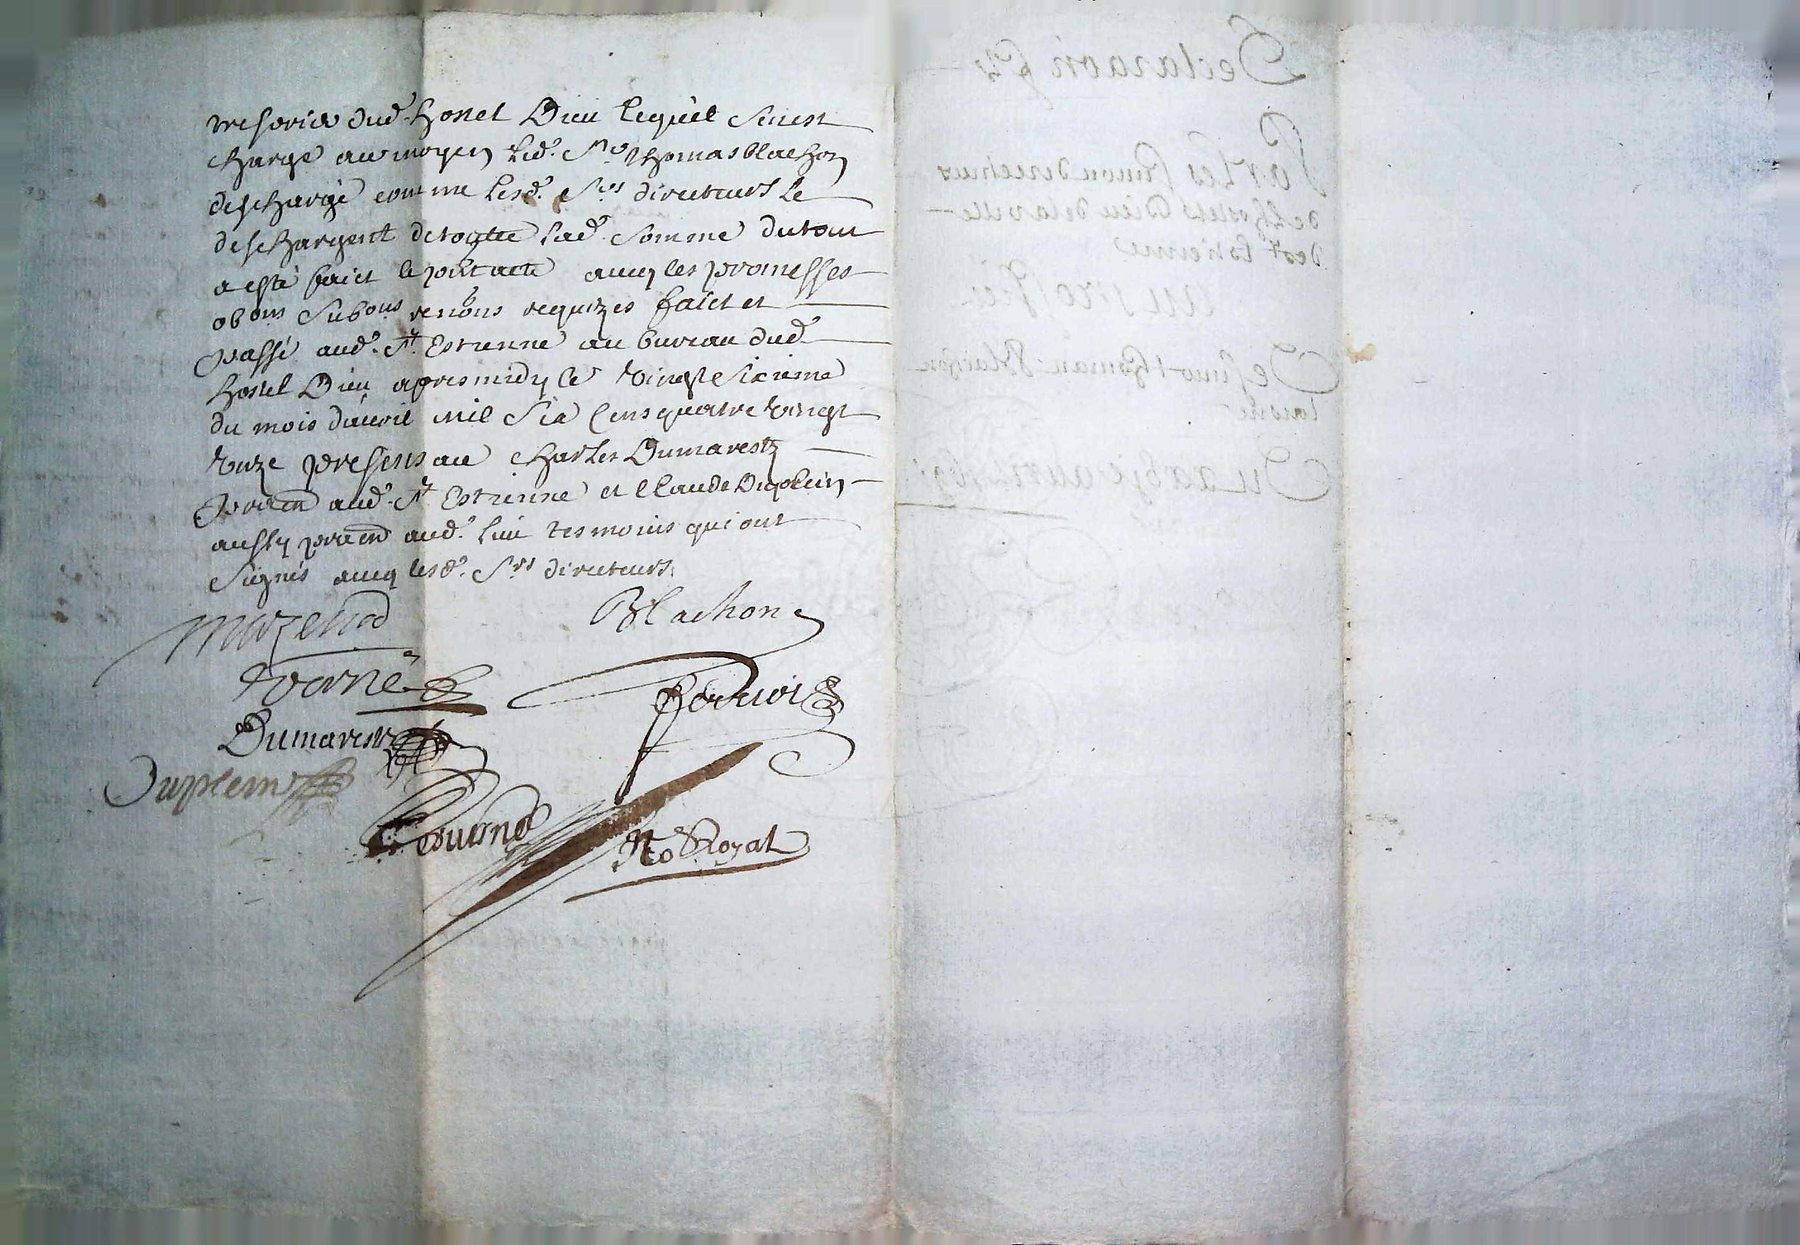 tresorier dud. hostel Dieu lequel s'en est
chargé au moyen led. Sr thomas blachon
deschargé comme lesd. Srs directeurs le
deschargent de toutte lad. somme du tout
a esté faict le pnt acte aueq les promesses
obons subons renons requizes faict et
passé aud. St Estienne au bureau dud.
hostel Dieu apres midy le vingt sixieme
du mois d'auril mil six cens quatre vingt
vnze presens au charles Dumarestz
praen aud. St Estienne et Claude Duplein
aussy praen aud. lieu tesmoins qui ont
signés aueq lesd. Srs directeurs
Blachon
Dumarestz
Duplein
Nre Royal
Declaraon
Par Les
de L'hostel Dieu de la ville
de St Estienne
au proffit
De thomas Blachon